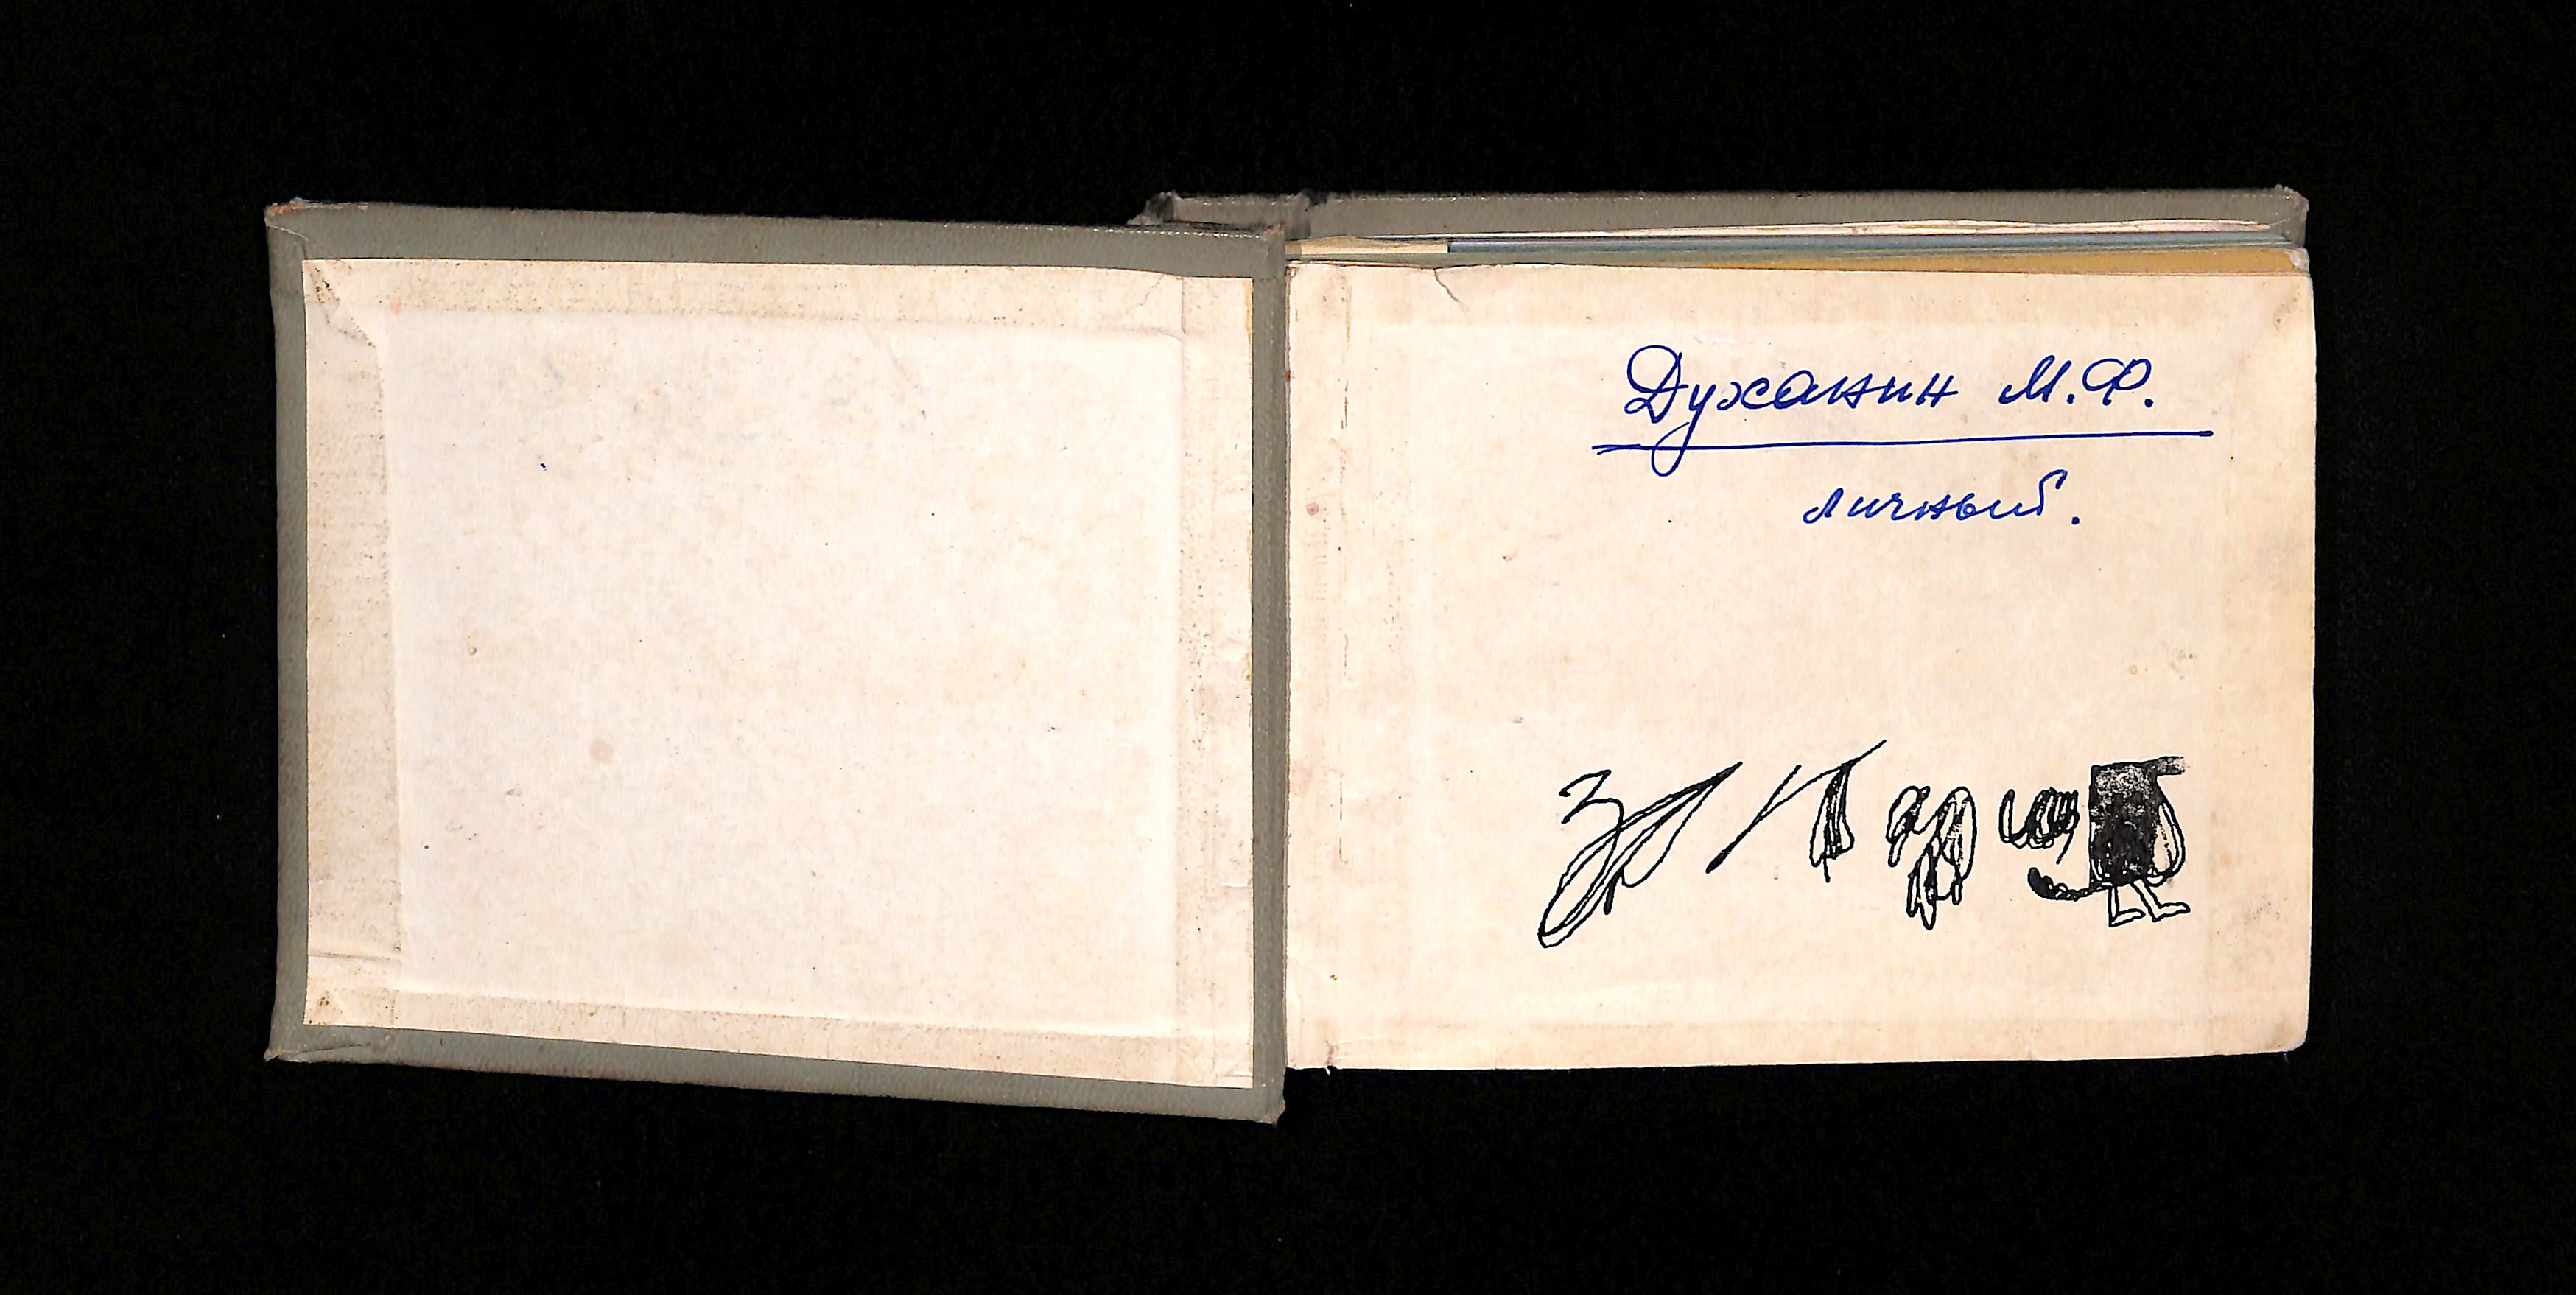 Духанин М.Ф.
личный.